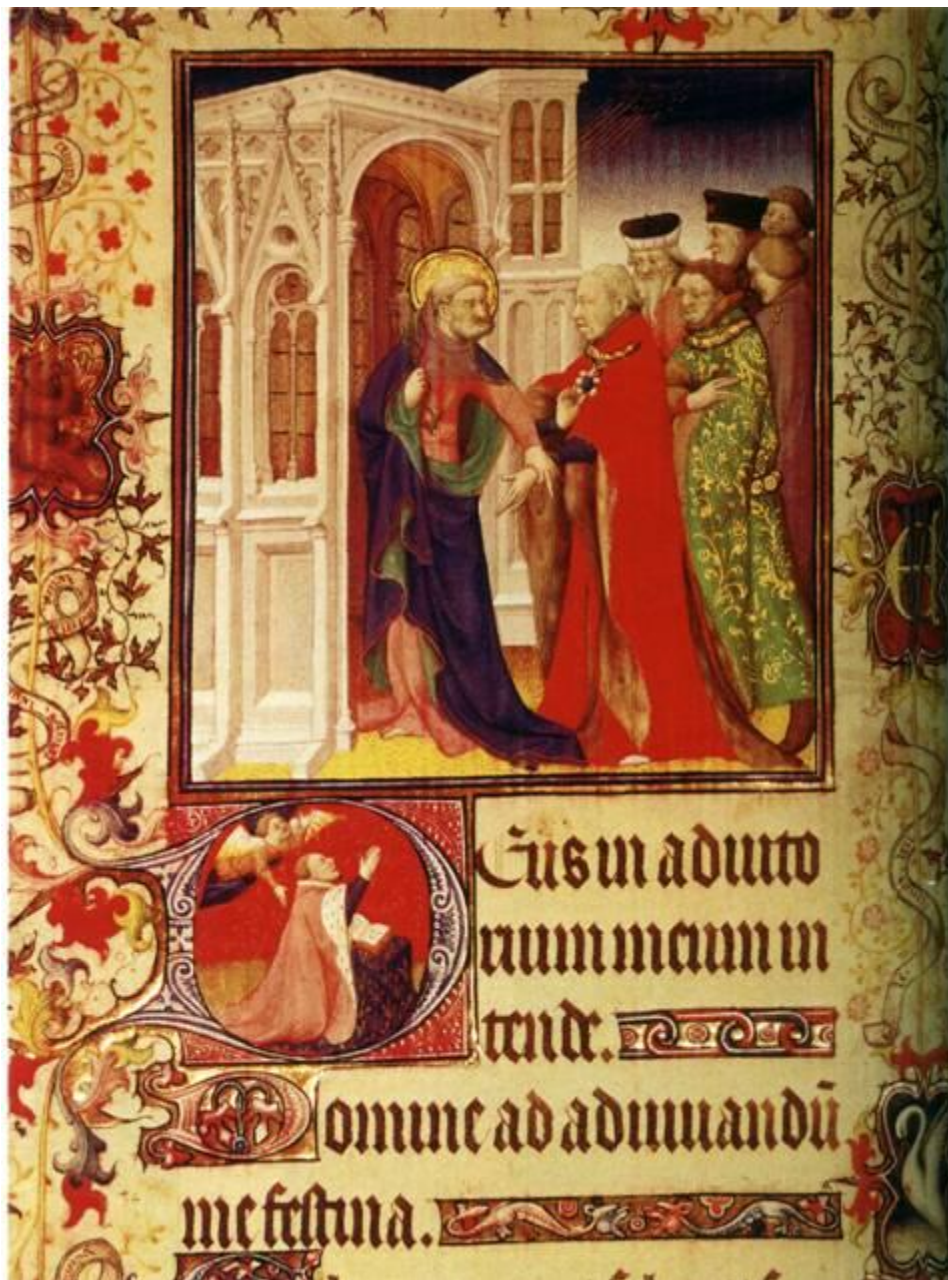 Deus in adiuto
rium meum in
tende.
Domine ad adiuuandū
me festina.